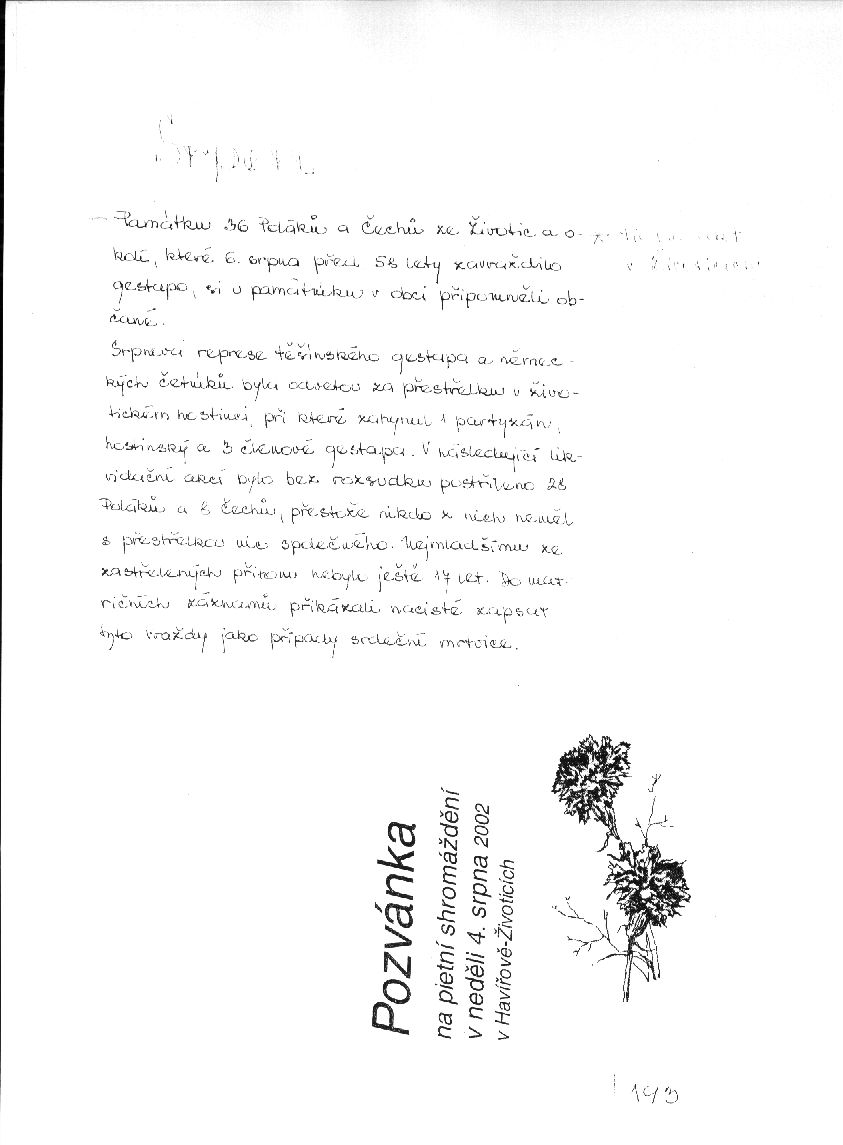 Srpnová
Památku 36 Poláků a Čechů ze Životic a o-
kolí, které 6. srpna před 58 lety zavraždilo
gestapo, si u památníku v obci připomněli ob-
čané.
v Životicích
Srpnová represe těšínského gestapa a němec-
kých četníků byla odvetou za přestřelku v živo-
tickém hostinci, při které zahynul 1 partyzán,
hostinský a 3 členové gestapa. V následující lik-
vidační akci bylo bez rozsudku postříleno 28
Poláků a 8 Čechů, přestože nikdo z nich neměl
s přestřelkou nic společného. Nejmladšímu ze
zastřelených přitom nebylo ještě 17 let. Do mat-
ričních záznamů přikázali nacisté zapsat
tyto vraždy jako případy srdeční mrtvice.
Pozvánka
na pietní shromáždění
v neděli 4. srpna 2002
v Havířově-Životicích
193